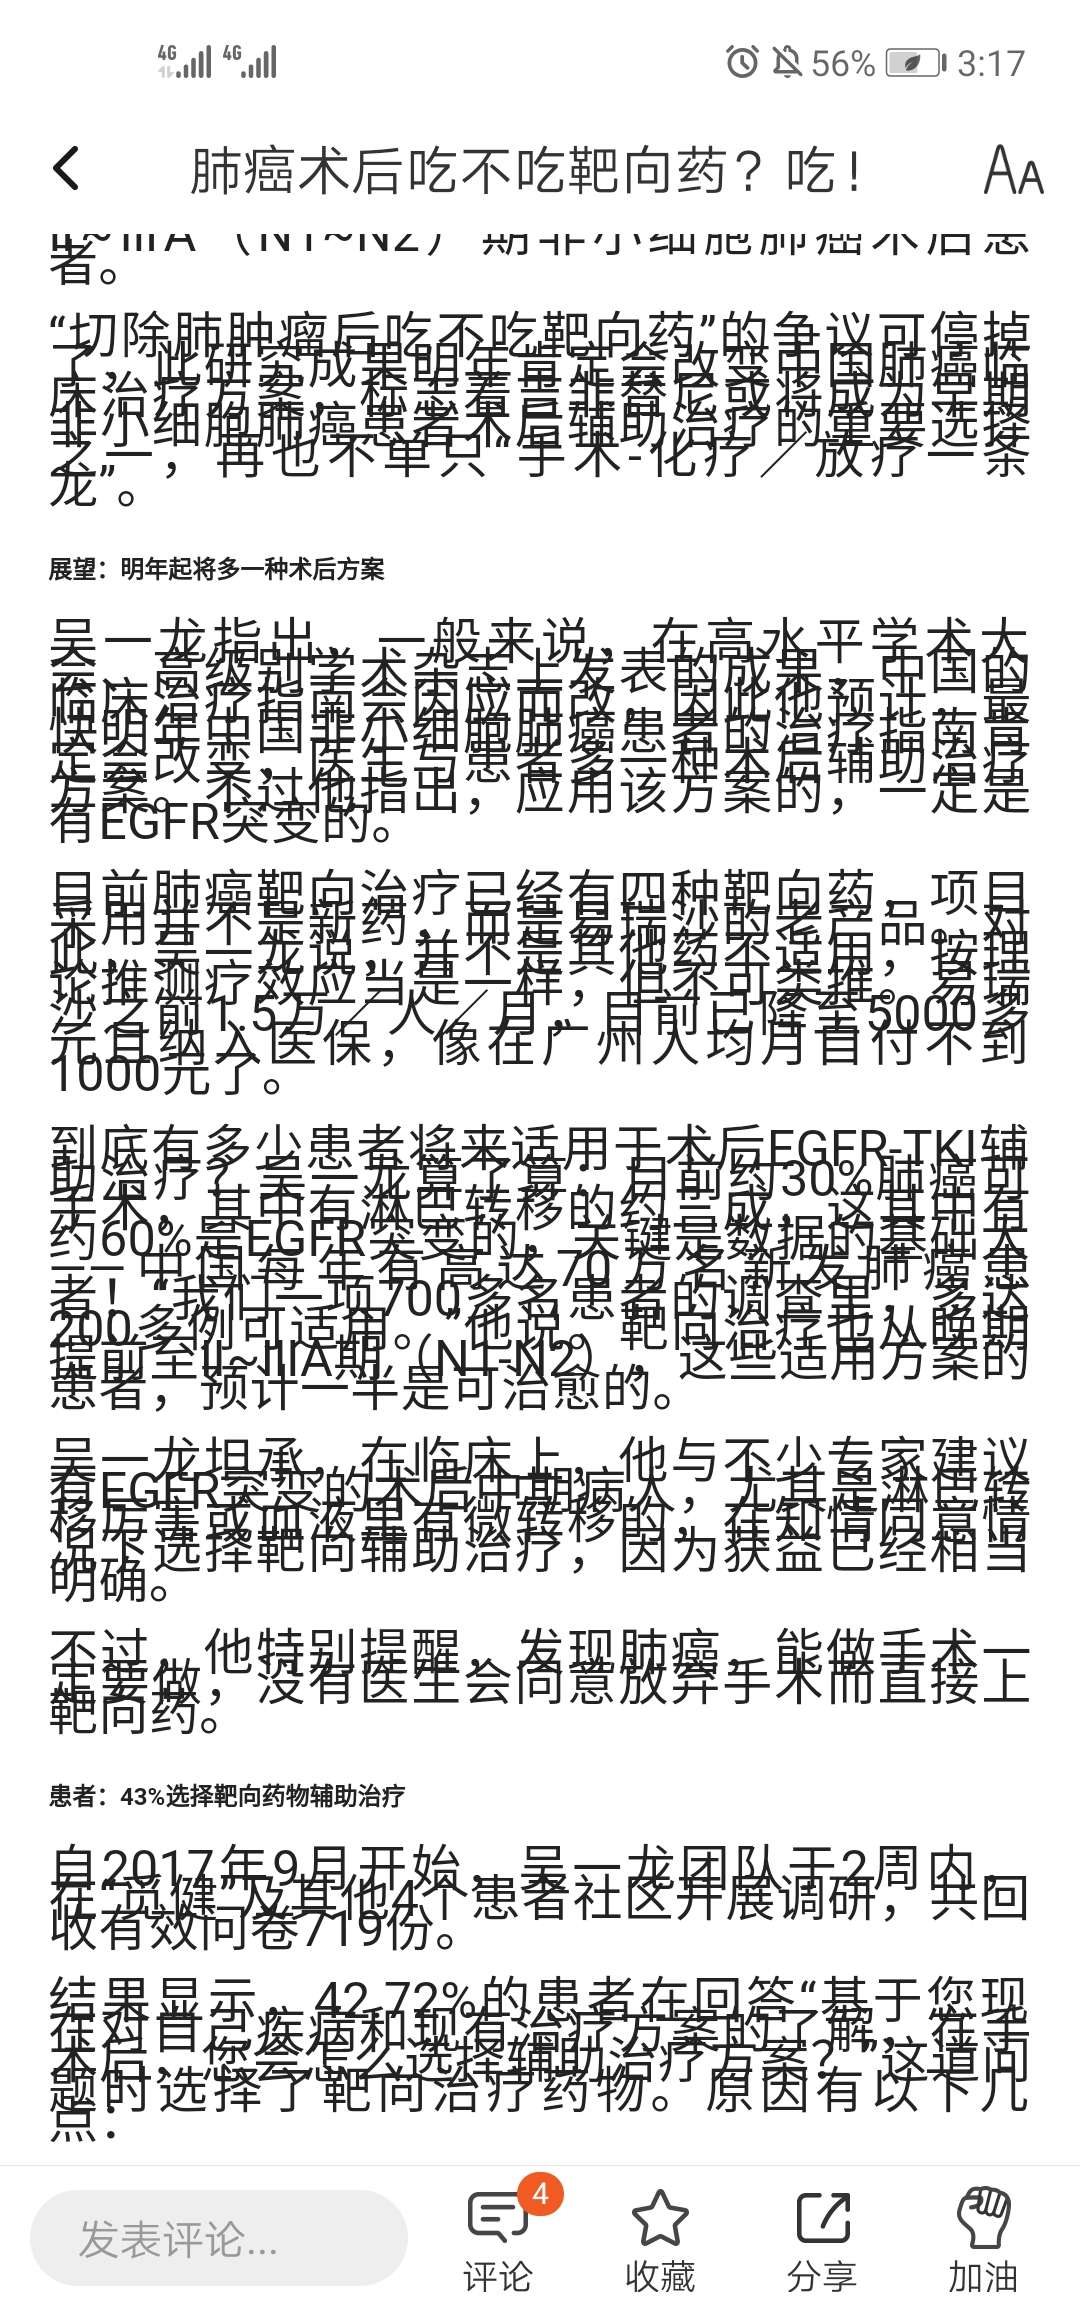 4G 4G 56% 3:17
肺癌术后吃不吃靶向药？吃！
II~IIIA（N1~N2）期非小细胞肺癌术后患
者。
“切除肺肿瘤后吃不吃靶向药”的争议可停掉
了，此研究成果明年肯定会改变中国肺癌临
床治疗方案，标志着吉非替尼或将成为早期
非小细胞肺癌患者术后辅助治疗的重要选择
之一，再也不单只“手术-化疗／放疗一条
龙”。
展望：明年起将多一种术后方案
吴一龙指出，一般来说，在高水平学术大
会、高级别学术杂志上发表的成果，中国的
临床治疗指南会因应而改，因此他预计，最
快明年中国非小细胞肺癌患者的治疗指南肯
定会改变，医生与患者多一种术后辅助治疗
方案。不过他指出，应用该方案的，一定是
有EGFR突变的。
目前肺癌靶向治疗已经有四种靶向药，项目
采用并不是新药，而是易瑞沙的老产品。对
此，吴一龙说，并不是其他药不适用，按理
论推测疗效应当是一样，但不可类推。易瑞
沙之前1.5万／人／月，目前已降至5000多
元且纳入医保，像在广州人均月自付不到
1000元了。
到底有多少患者将来适用于术后EGFR-TKI辅
助治疗？吴一龙算了算：目前约30%肺癌可
手术，其中有淋巴转移的约三成，这其中有
约60%是EGFR突变的，关键是数据的基础大
——中国每年有高达70万名新发肺癌患
者！“我们一项700多名患者的调查里，多达
200多例可适用。”他说。靶向治疗也从晚期
提前至II~IIIA期（N1-N2），这些适用方案的
患者，预计一半是可治愈的。
吴一龙坦承，在临床上，他与不少专家建议
有EGFR突变的术后中期病人，尤其是淋巴转
移厉害或血液里有微转移的，在知情同意情
况下选择靶向辅助治疗，因为获益已经相当
明确。
不过，他特别提醒，发现肺癌，能做手术一
定要做，没有医生会同意放弃手术而直接上
靶向药。
患者：43%选择靶向药物辅助治疗
自2017年9月开始，吴一龙团队于2周内，
在“觅健”及其他4个患者社区开展调研，共回
收有效问卷719份。
结果显示，42.72%的患者在回答“基于您现
在对自己疾病和现有治疗方案的了解，在手
术后，您会怎么选择辅助治疗方案？”这道问
题时选择了靶向治疗药物。原因有以下几
点：
发表评论...
4
评论 收藏 分享 加油